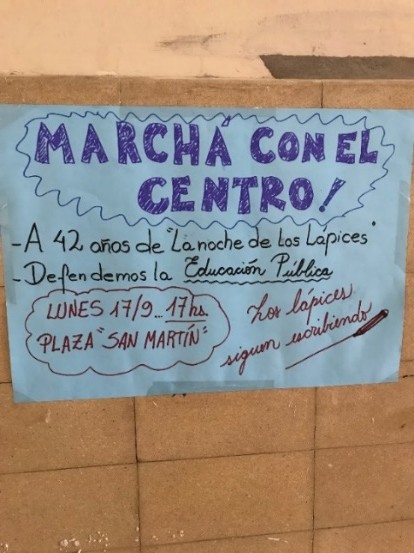 MARCHÁ CON EL
CENTRO!
- A 42 años de "La noche de los Lápices"
- Defendemos la Educación Pública
LUNES 17/9... 17hs.
PLAZA "SAN MARTÍN"
Los lápices
siguen escribiendo